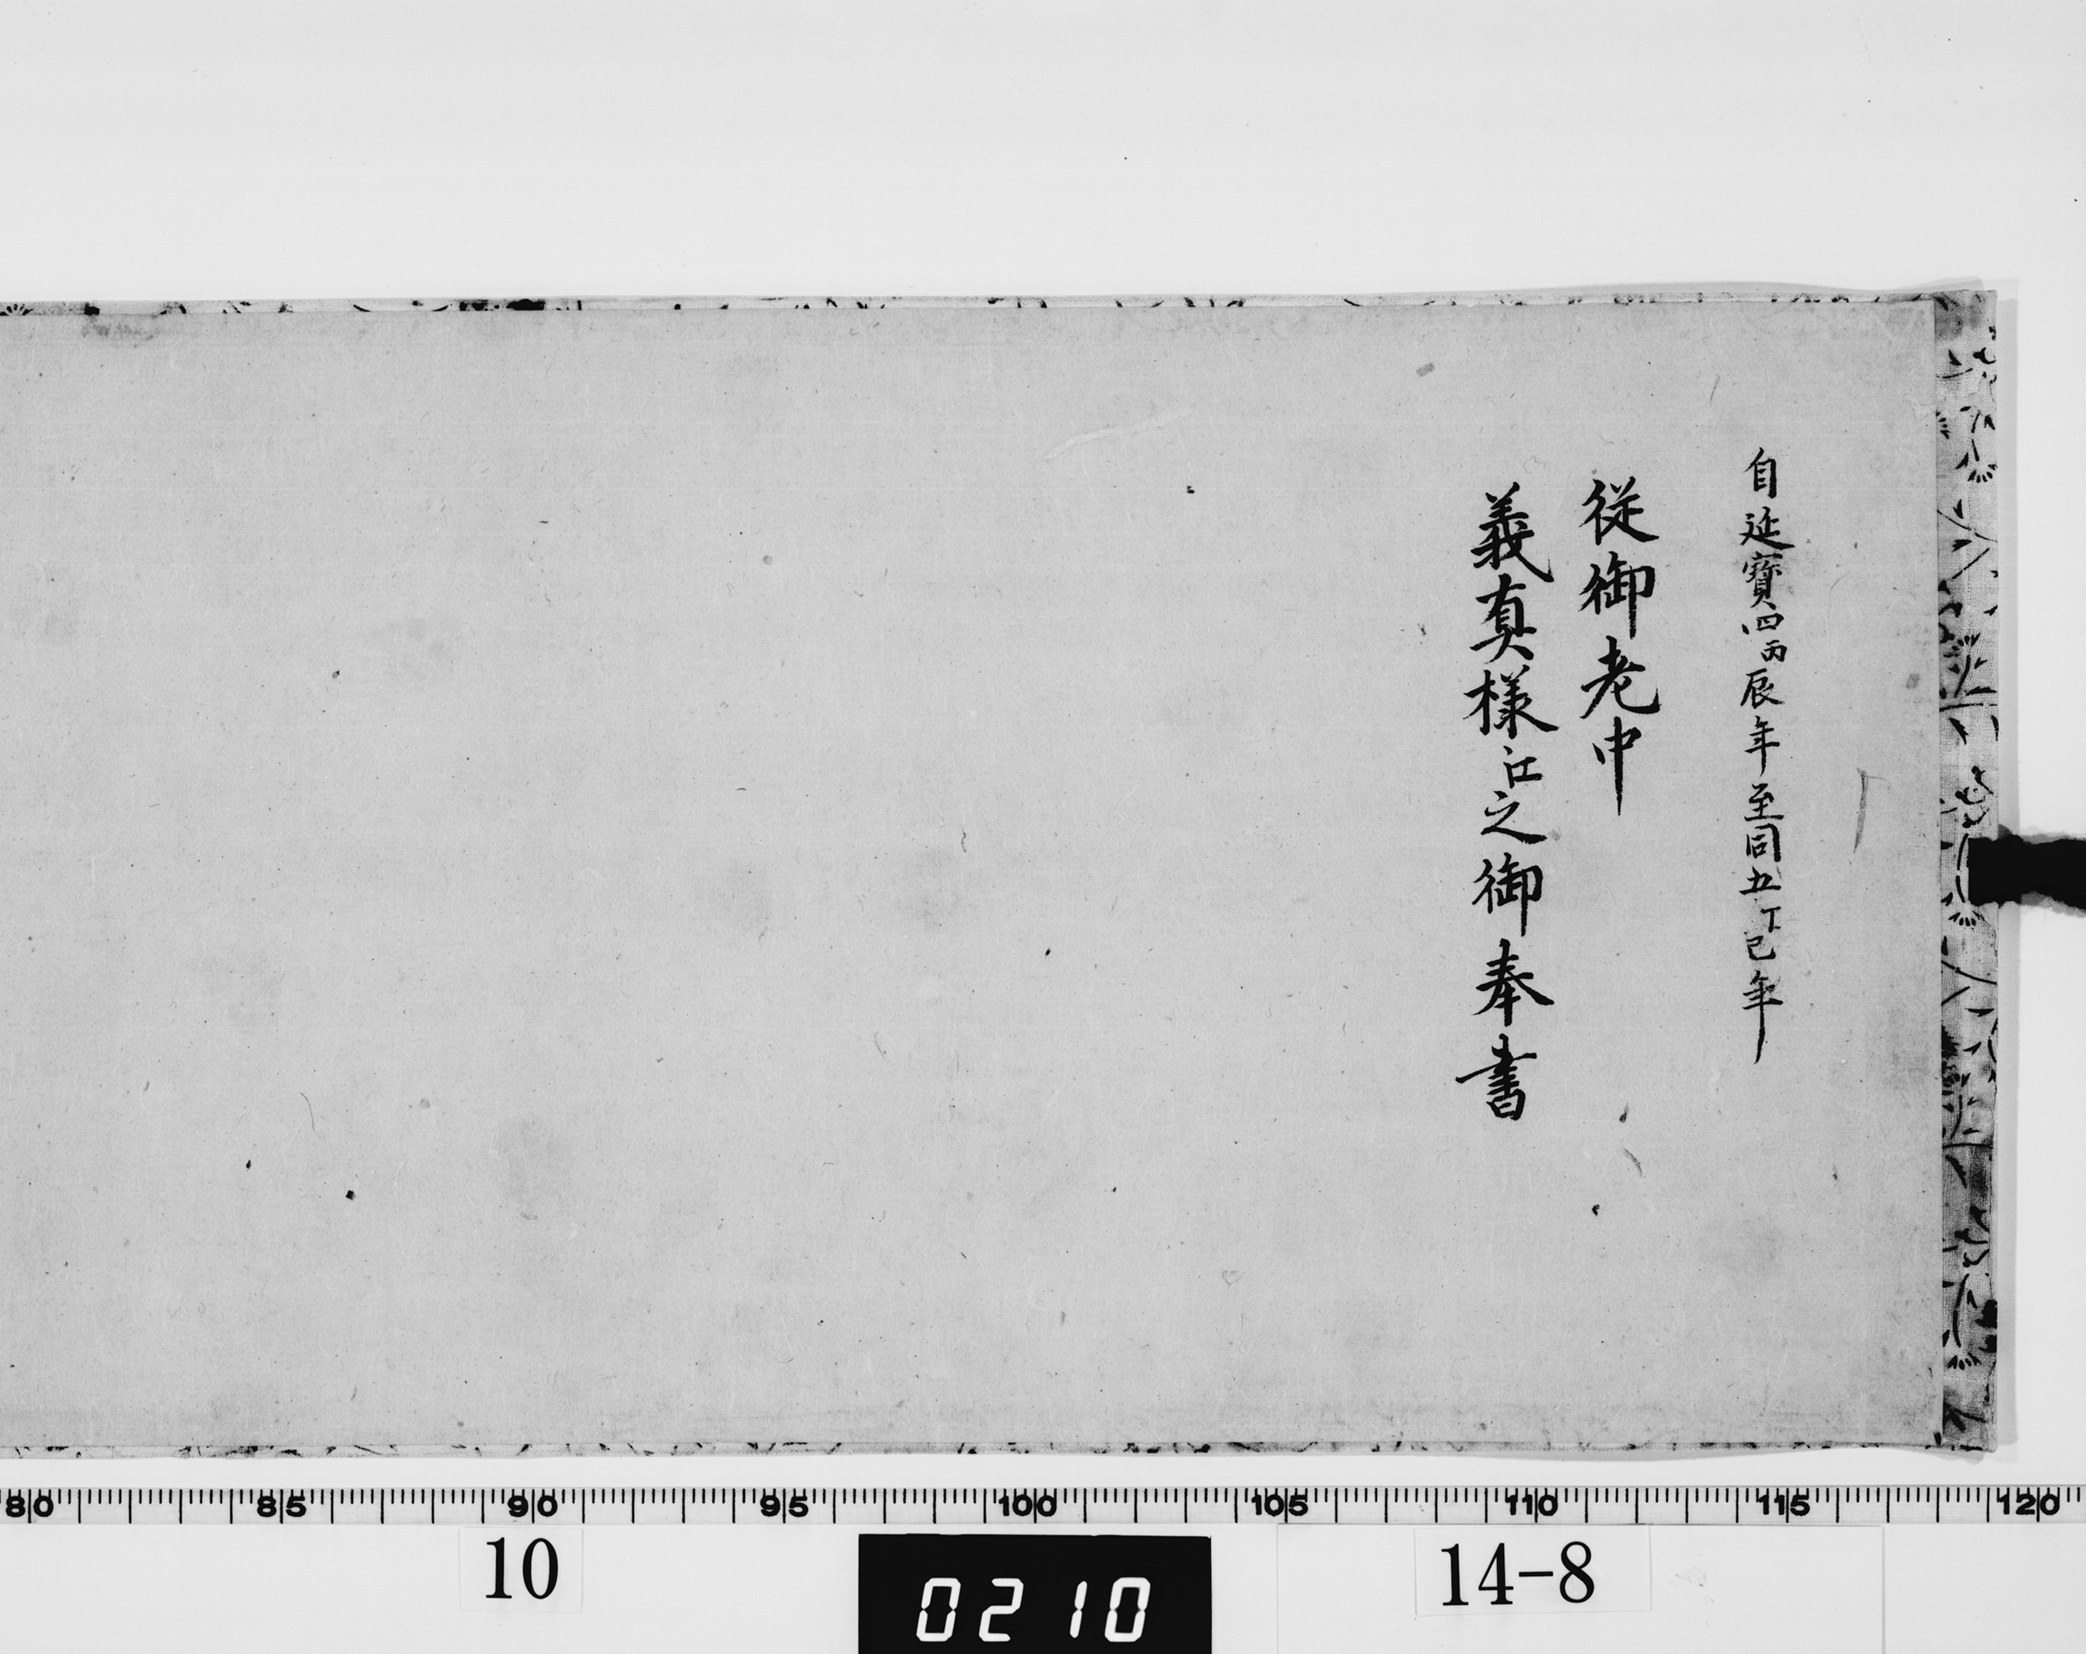 自延寳四丙辰年至同五丁巳年
従御老中
義真様江之御奉書
80 85 90 95 100 105 110 115 120
10
0210
14-8